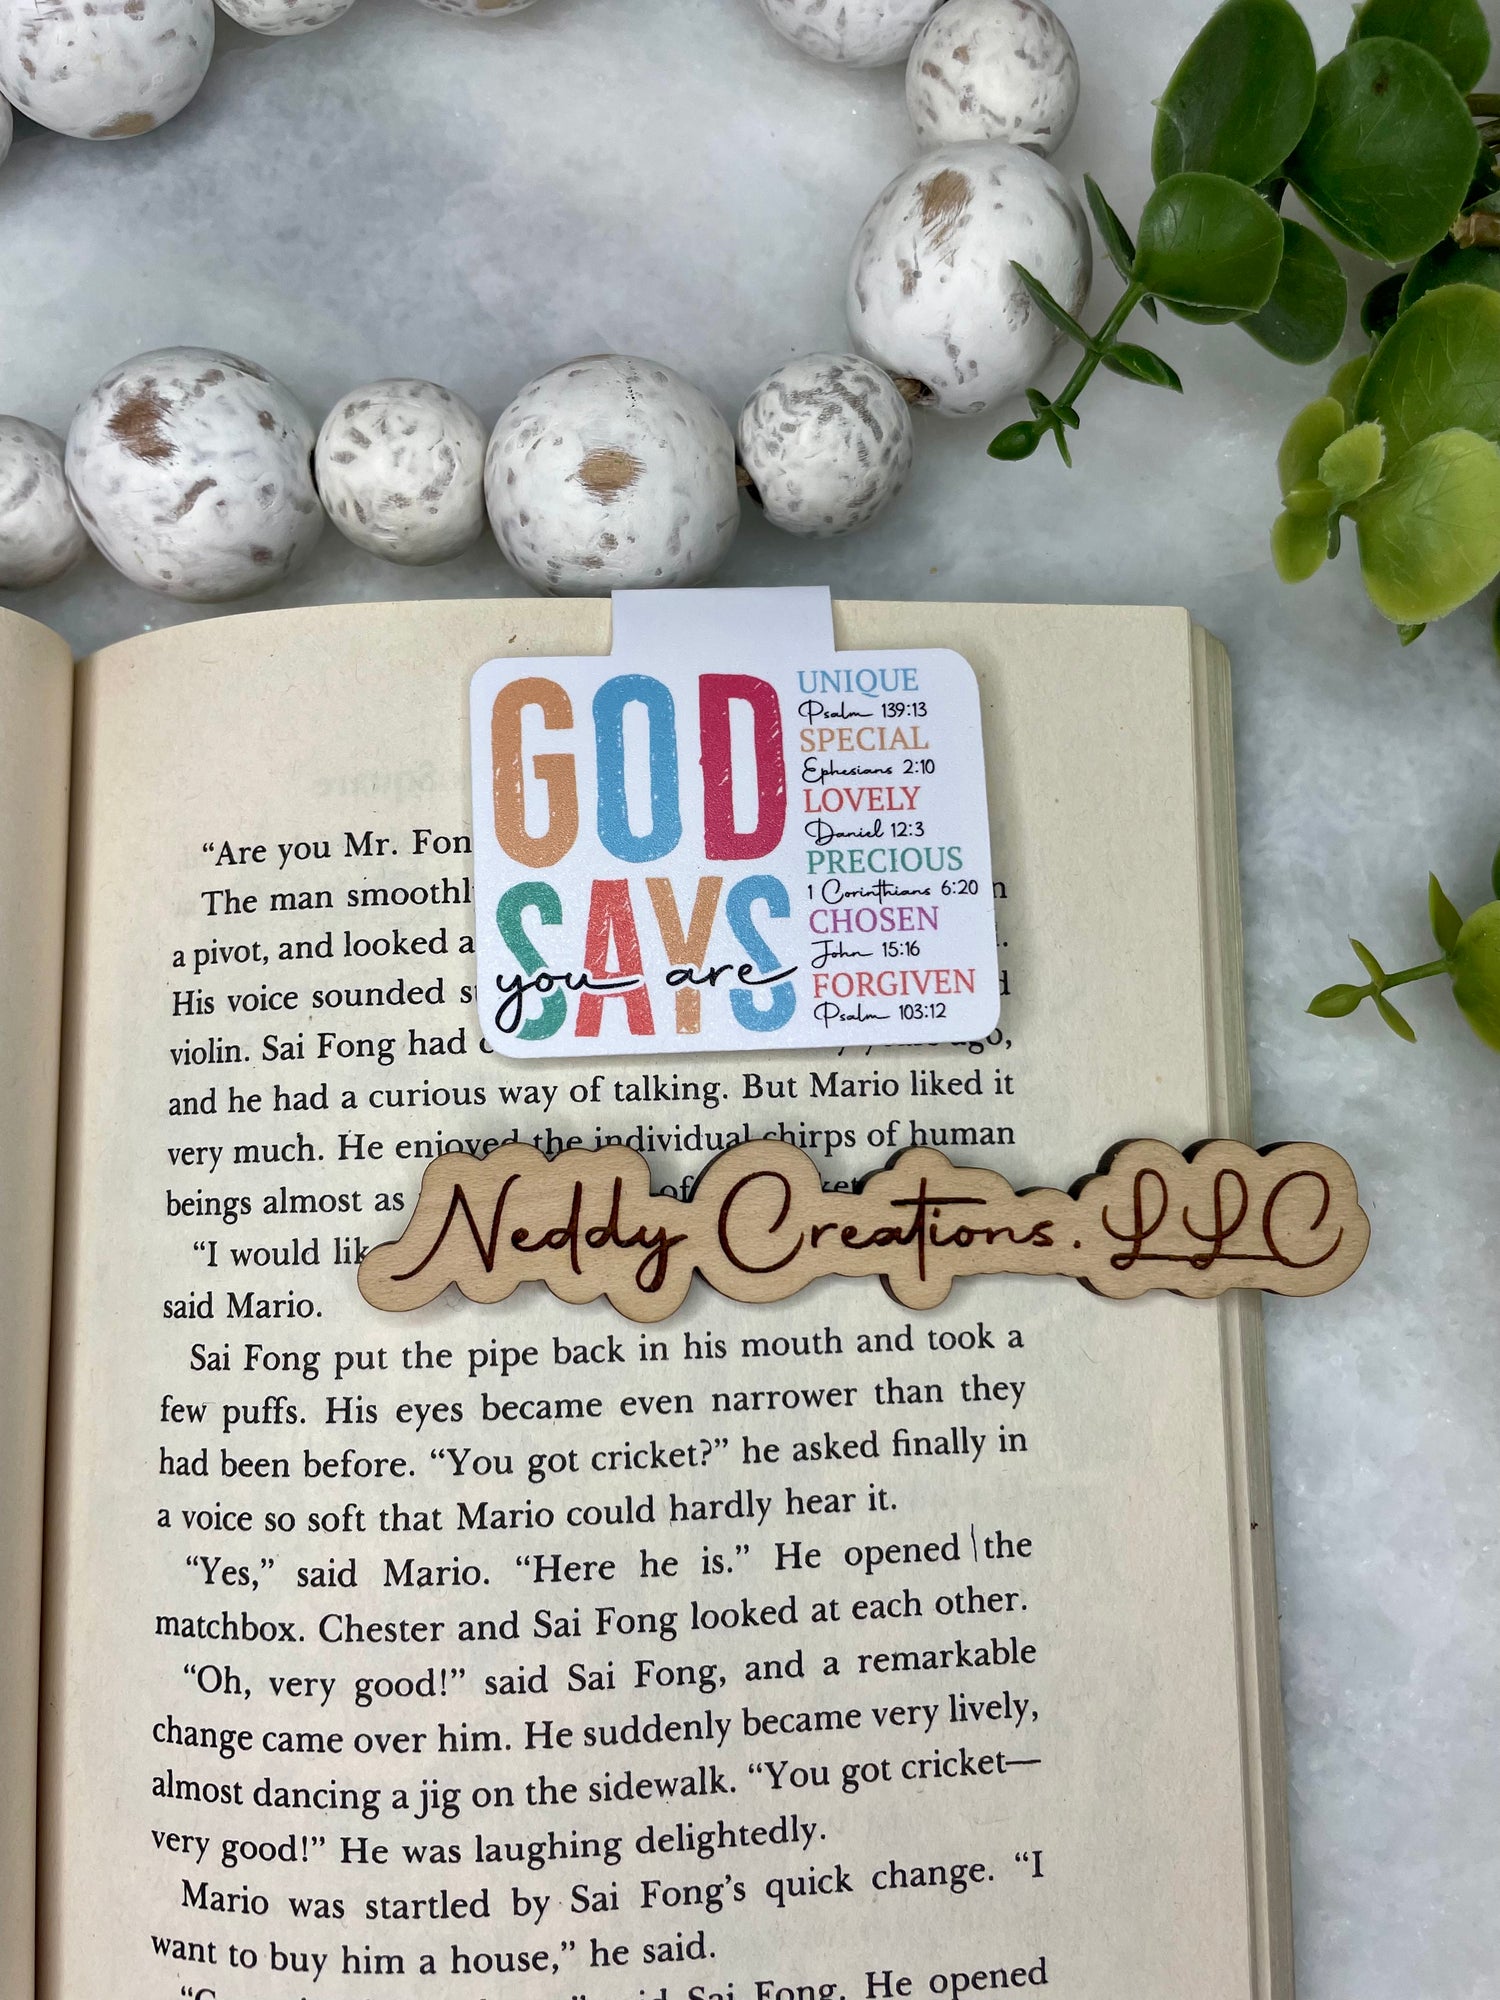 GOD
SAYS
you are
UNIQUE
Psalm 139:13
SPECIAL
Ephesians 2:10
LOVELY
Daniel 12:3
PRECIOUS
1 Corinthians 6:20
CHOSEN
John 15:16
FORGIVEN
Psalm 103:12
“Are you Mr. Fon
The man smoothl
a pivot, and looked a
His voice sounded s
violin. Sai Fong had ago,
and he had a curious way of talking. But Mario liked it
very much. He enjoyed the individual chirps of human
beings almost as of
Neddy Creations. LLC
“I would lik
said Mario.
Sai Fong put the pipe back in his mouth and took a
few puffs. His eyes became even narrower than they
had been before. “You got cricket?” he asked finally in
a voice so soft that Mario could hardly hear it.
“Yes,” said Mario. “Here he is.” He opened the
matchbox. Chester and Sai Fong looked at each other.
“Oh, very good!” said Sai Fong, and a remarkable
change came over him. He suddenly became very lively,
almost dancing a jig on the sidewalk. “You got cricket—
very good!” He was laughing delightedly.
Mario was startled by Sai Fong’s quick change. “I
want to buy him a house,” he said.
Sai Fong. He opened